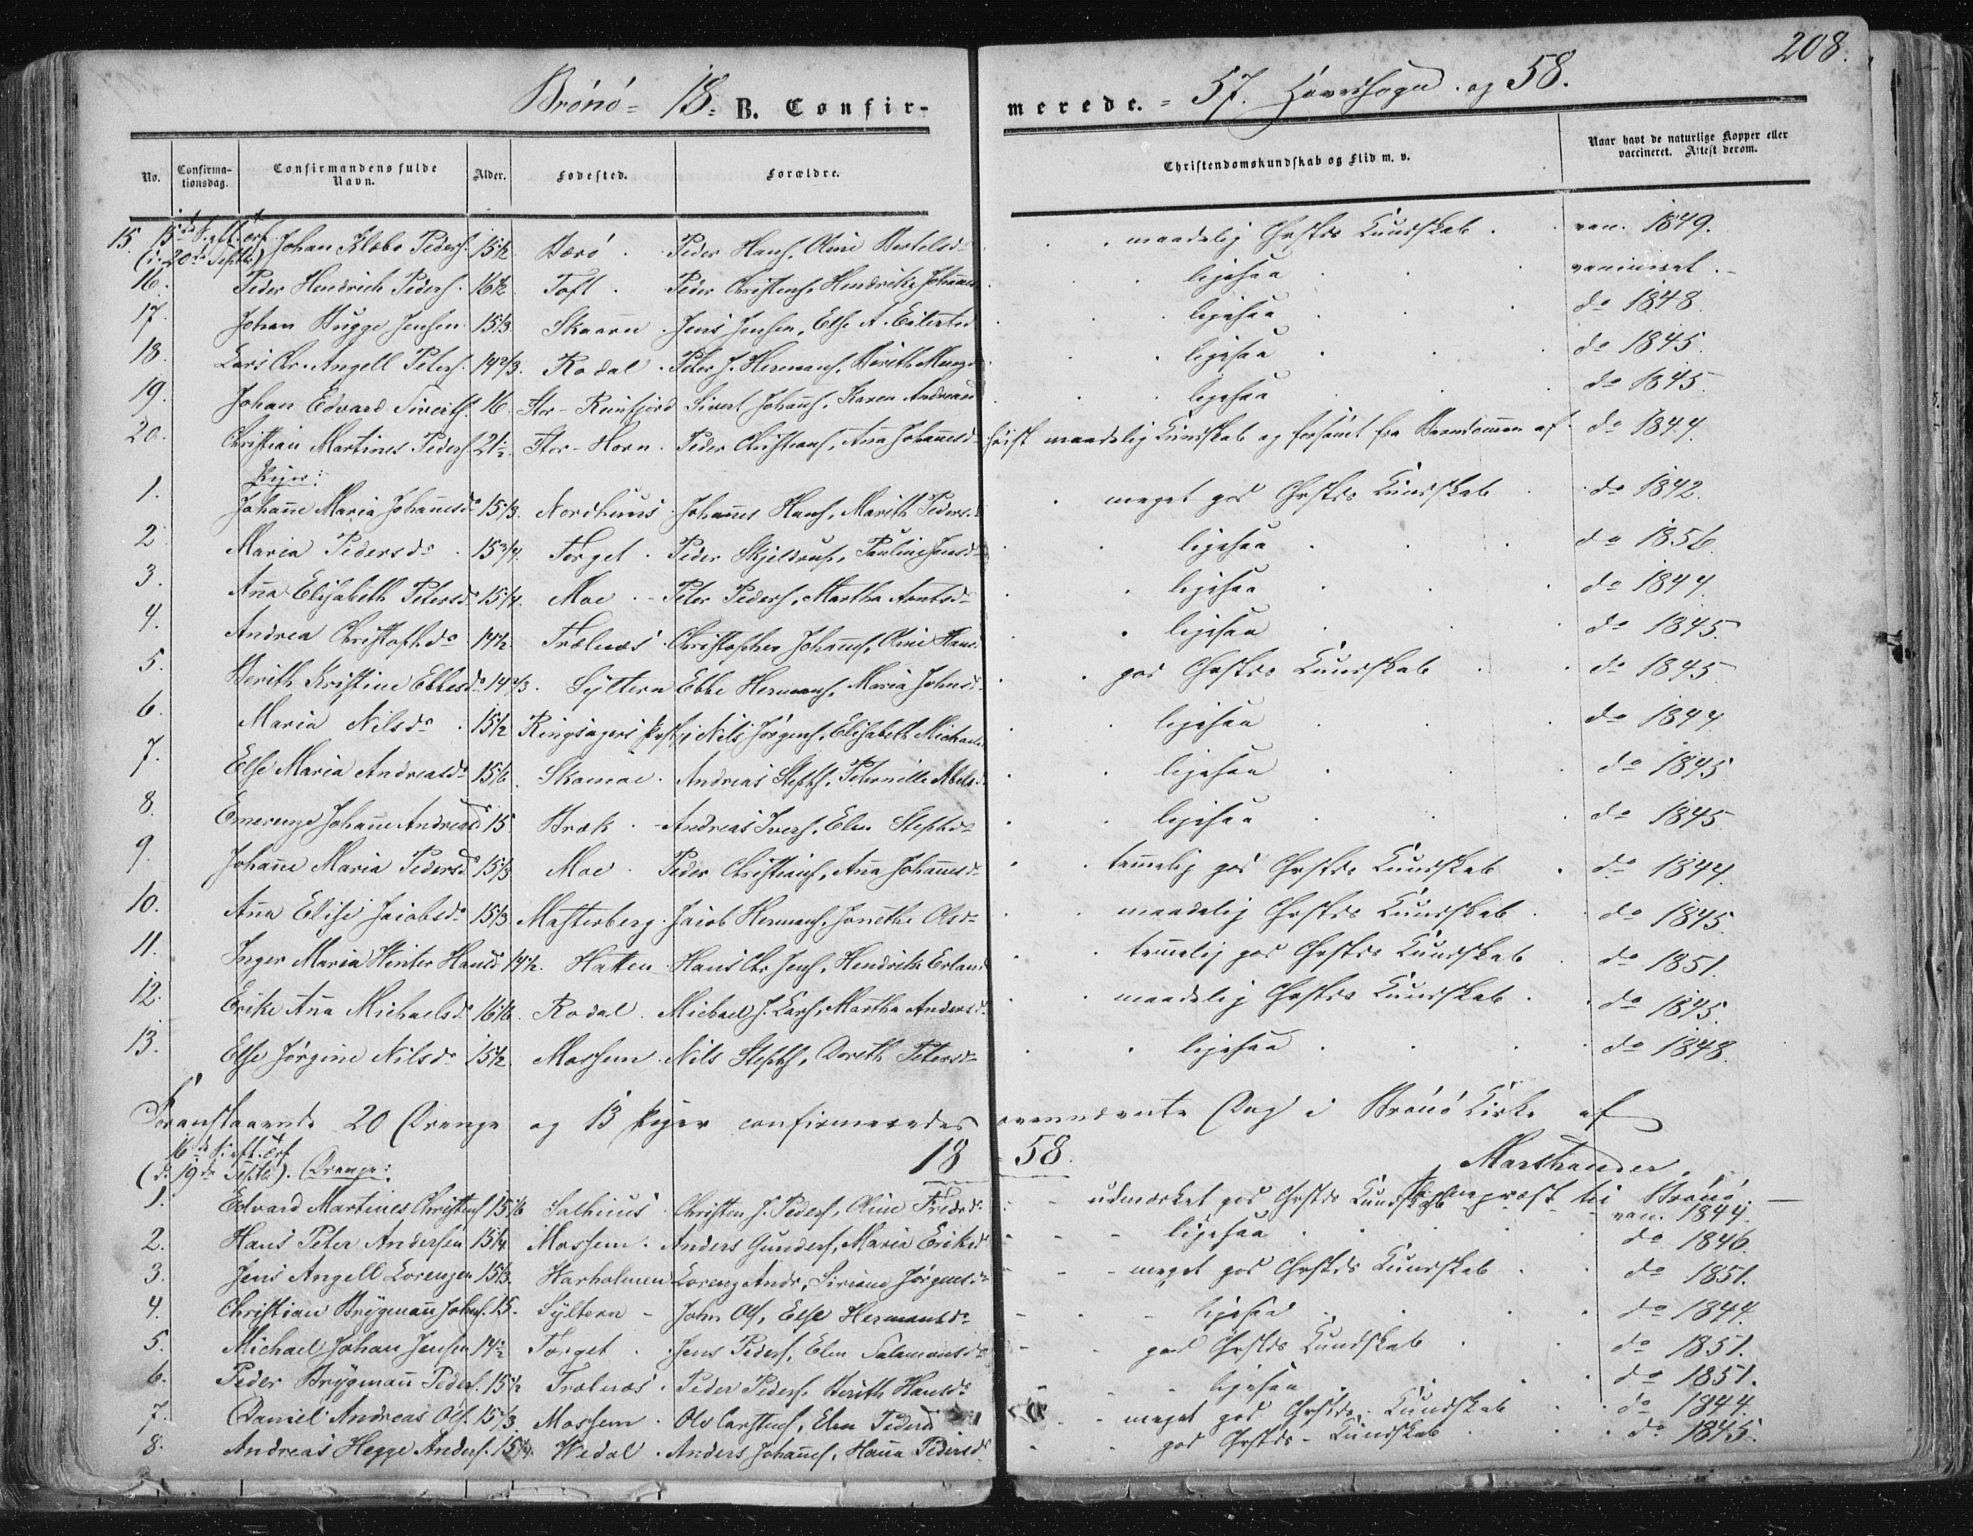 208.
Brönö = 18 = B. Confirmerede. = 57. Hovedsogn. og 58.
No. Confirmationsdag. Confirmandens fulde Navn. Alder. Fødested. Forældre. Christendomskundskab og Flid m. v. Naar havt de naturlige Kopper eller vaccineret. Attest derom.
15. 15de S. eft. (: 20de Septbr) Johan Peders. 15½ Peder Hans, Oline Bertelsd. maadelig Chrstds Kundskab. vac. 1849.
16. Peder Hendrich Peders. 16½ Toft. Peder Christens, Hendrikke ligesaa vaccineret.
17. Johan Bugge Jensen 15⅓ Skaarn. Jens Jensen, Else A. ligesaa do 1848.
18. Lars Chr. Angell Peters. 14⅔ Rodal. Peter J. Hermans, Berith ligesaa do 1845.
19. Johan Edvard Siverts. 16. Sivert Johans, Karen Andreasd ligesaa do 1845.
20. Christian Martines Peders. 21½ Stor-Horn. Peder Christians, Ana Johanesd. høist maadelig Kundskab og forsømt fra Barndommen af. do 1844.
Piger:
1. Johane Maria Johanesd. 15⅓. Nordhuus Johanes Hans, Marith Pedersd. meget god Chrstds Kundskab do 1842.
2. Maria Pedersdr. 15¾. Torget. Peder Skjeldrup, ligesaa do 1856.
3. Ana Elisabeth Petersd. 15¼. Moe. Peter Peders, Martha Arntsd. ligesaa do 1844.
4. Andrea Christophd. 14½. Trælnæs. Christopher Johans, Oline Hansd. ligesaa do 1845.
5. Berith Kristine Ebbesd. 14⅔. Syltern Ebbe Hermans, Maria Johnsd. god Chrstds Kundskab do 1845.
6. Maria Nilsdr. 15½ Ringsagers Nils Jörgens, Elisabeth Michaelsd ligesaa do 1844.
7. Else Maria Andreasd. 15⅙. Skomoe. Andreas Stephs, Peternille Abelsd. ligesaa do 1845.
8. Emerenze Johane Andreasd. 15 Bræk. Andreas Ivers, Elen Stephd. ligesaa do 1845.
9. Johane Maria Pedersd. 15⅓ Moe. Peder Christians, Ana Johanesd. temelig god Chrstds Kundskab. do 1844.
10. Ana Elise Jacobsd. 15⅓ Masterberg. Jacob Hermans, Jonethe Olsd. maadelig Chrstds Kundskab. do 1845.
11. Inger Maria Winter Hansd. 14½. Hatten. Hans Chr. Jens, Hendrikke Erlandsd temelig god Chrstds Kundskab. do 1851.
12. Erike Ana Michaelsd. 16⅙. Rodal. Michael J. Lars, Martha Andersd. maadelig Chrstds Kundskab. do 1845.
13. Else Jörgine Nilsdr. 15½. Mosheim. Nils Stephs, Doreth Petersd. ligesaa. do 1848.
Foranstaaende 20 Drenge og 13 Piger confirmeredes ovennævnte Dag i Brönö Kirke af
Marstrander,
Sognepræst til Brönö.
1858.
16de S. eft. (: d. 19de Septbr). Drenge:
1. Edvard Martines Christens 15⅙ Salhuus. Christen J. Peders, Oline Fredrd. udmærket god Chrstds Kundskab vac. 1844.
2. Hans Peter Andersen 15¼. Mosheim. Anders Gunders, Maria Eriksd. ligesaa. do 1846.
3. Jens Angell Lorenzen 15⅓. Harholmen Lorenz Andr, Siriane Jörgensd. meget god Chrstds Kundskab. do 1851.
4. Christian Brygman Johns. 15. Syltern John Ols, Else Hermansd. ligesaa do 1844.
5. Michael Johan Jensen 14½ Torget. Jens Peders, Elen Salamonsd. god Chrstds Kundskab do 1851.
6. Peder Brygman Peders. 15½ Trælnæs. Peder Peders, Berith Hansd. ligesaa do 1851.
7. Daniel Andreas Ols. 15⅓ Mosheim. Ole Carstens, Elen Pedersd meget god Chrstds Kundskab do 1844.
8. Andreas Hegge Anders. 15¼ Wedal. Anders Johans, Hana Pedersd. god Chrstds Kundskab do 1845.